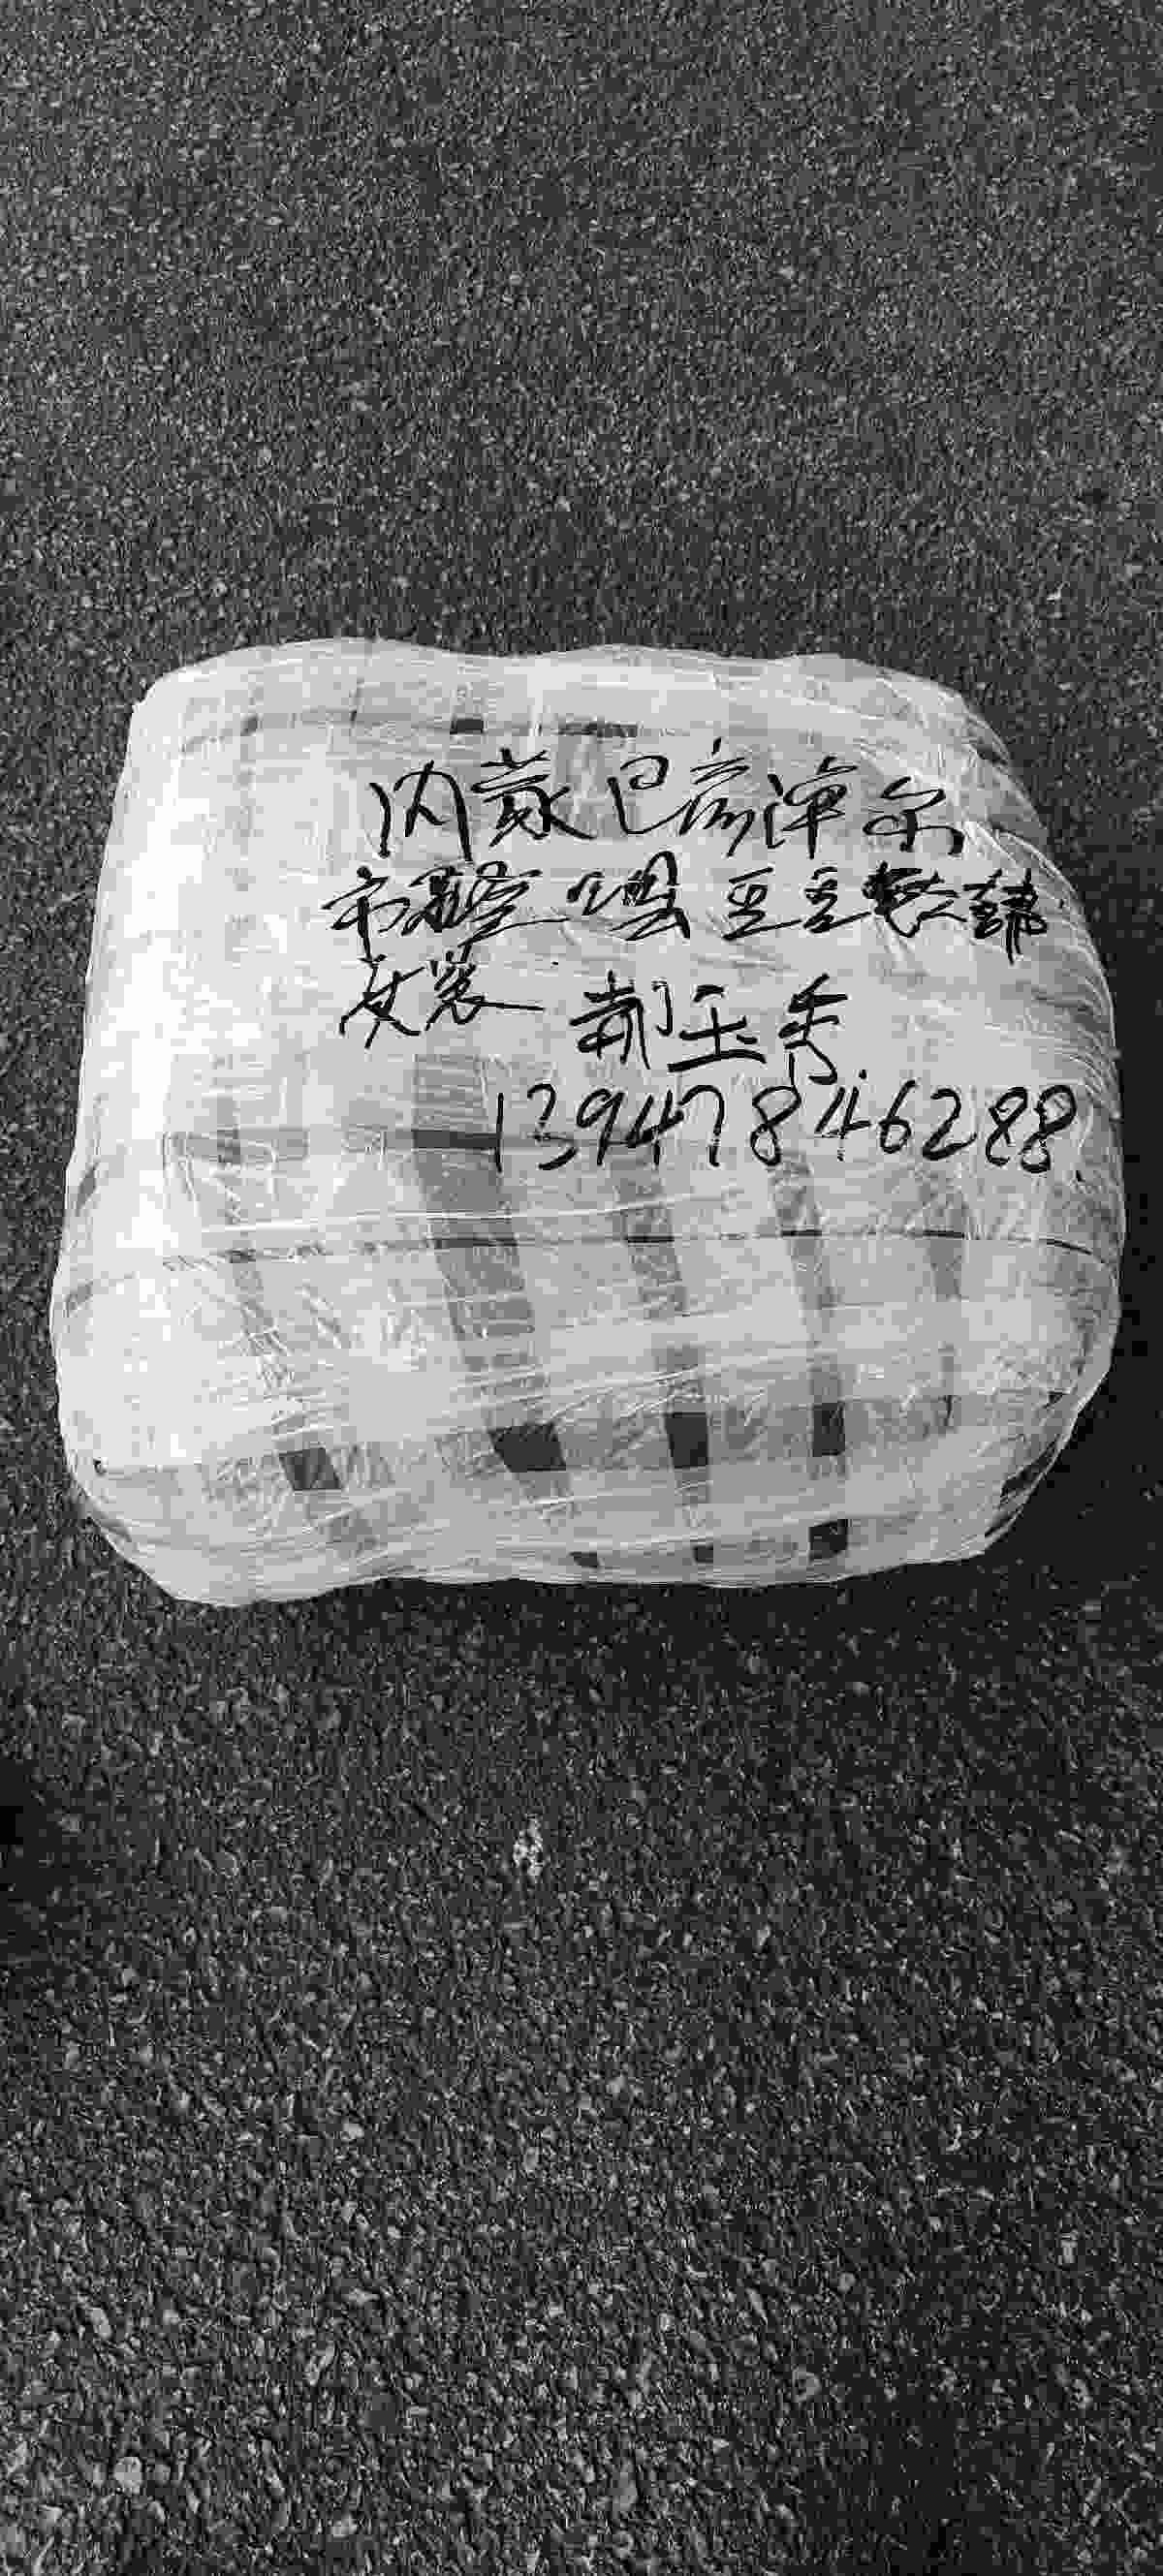 内蒙巴彦淖尔
市 豆豆
女装 郝玉秀
13947846288